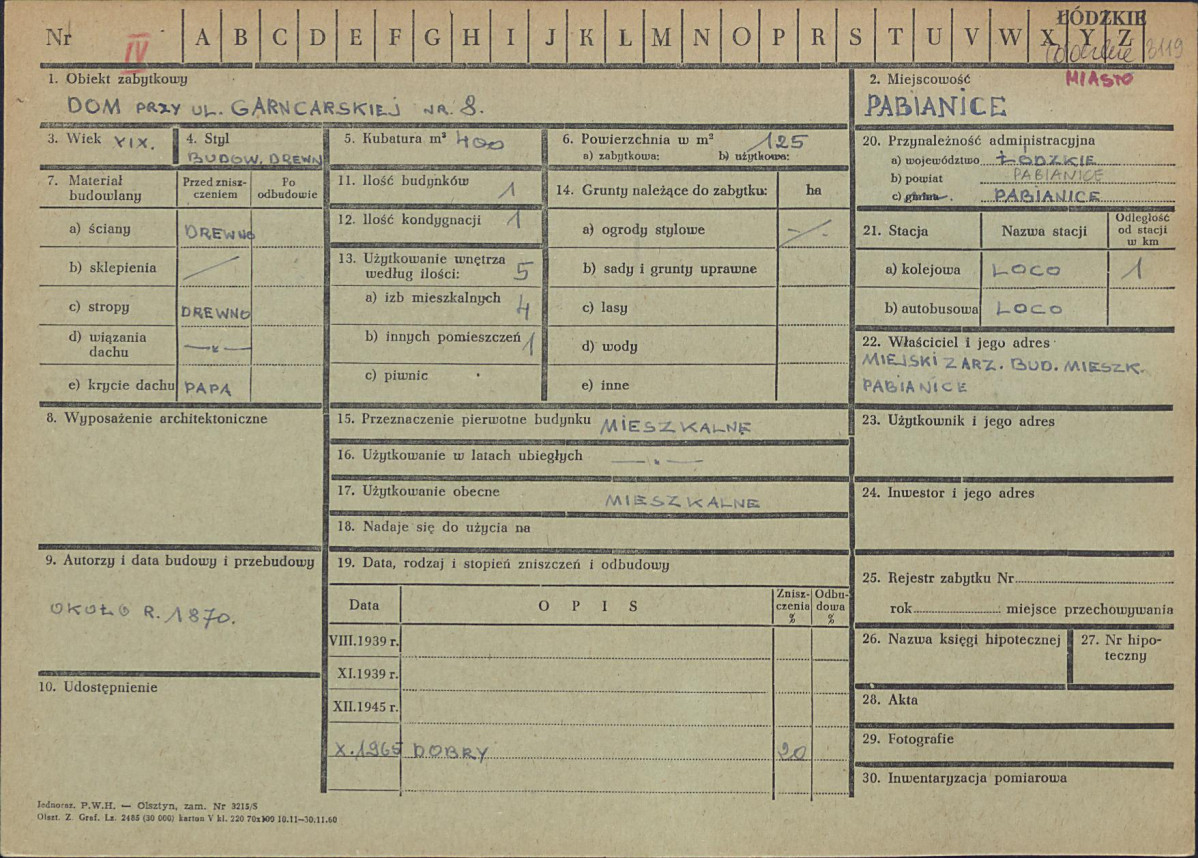 Nr IV A B C D E F G H I J K L M N O P R S T U V W X Y Z ŁÓDZKIE
3119
1. Obiekt zabytkowy
DOM PRZY UL. GARNCARSKIEJ NR. 8.
2. Miejscowość MIASTO
PABIANICE
3. Wiek XIX.
4. Styl
BUDOW. DREWN
5. Kubatura m³ 400
6. Powierzchnia w m² 125
a) zabytkowa: b) użytkowa:
20. Przynależność administracyjna
a) województwo ŁÓDZKIE
b) powiat PABIANICE
c) gmina. PABIANICE
7. Materiał budowlany
Przed zniszczeniem
Po odbudowie
a) ściany DREWNO
b) sklepienia
c) stropy DREWNO
d) wiązania dachu —„—
e) krycie dachu PAPA
11. Ilość budynków 1
12. Ilość kondygnacji 1
13. Użytkowanie wnętrza według ilości: 5
a) izb mieszkalnych 4
b) innych pomieszczeń 1
c) piwnic
14. Grunty należące do zabytku: ha
a) ogrody stylowe
b) sady i grunty uprawne
c) lasy
d) wody
e) inne
21. Stacja
Nazwa stacji
Odległość od stacji w km
a) kolejowa LOCO 1
b) autobusowa LOCO
22. Właściciel i jego adres
MIEJSKI ZARZ. BUD. MIESZK.
PABIANICE
8. Wyposażenie architektoniczne
15. Przeznaczenie pierwotne budynku MIESZKALNE
16. Użytkowanie w latach ubiegłych —„—
17. Użytkowanie obecne MIESZKALNE
18. Nadaje się do użycia na
23. Użytkownik i jego adres
24. Inwestor i jego adres
9. Autorzy i data budowy i przebudowy
OKOŁO R. 1870.
10. Udostępnienie
19. Data, rodzaj i stopień zniszczeń i odbudowy
Data OPIS Zniszczenia % Odbudowa %
VIII.1939 r.
XI.1939 r.
XII.1945 r.
X.1965 DOBRY 20
25. Rejestr zabytku Nr
rok : miejsce przechowywania
26. Nazwa księgi hipotecznej
27. Nr hipoteczny
28. Akta
29. Fotografie
30. Inwentaryzacja pomiarowa
Jednoraz. P.W.H. — Olsztyn, zam. Nr 3215/S
Olszt. Z. Graf. Lz. 2485 (30 000) karton V kl. 220 70x100 10.11—30.11.60